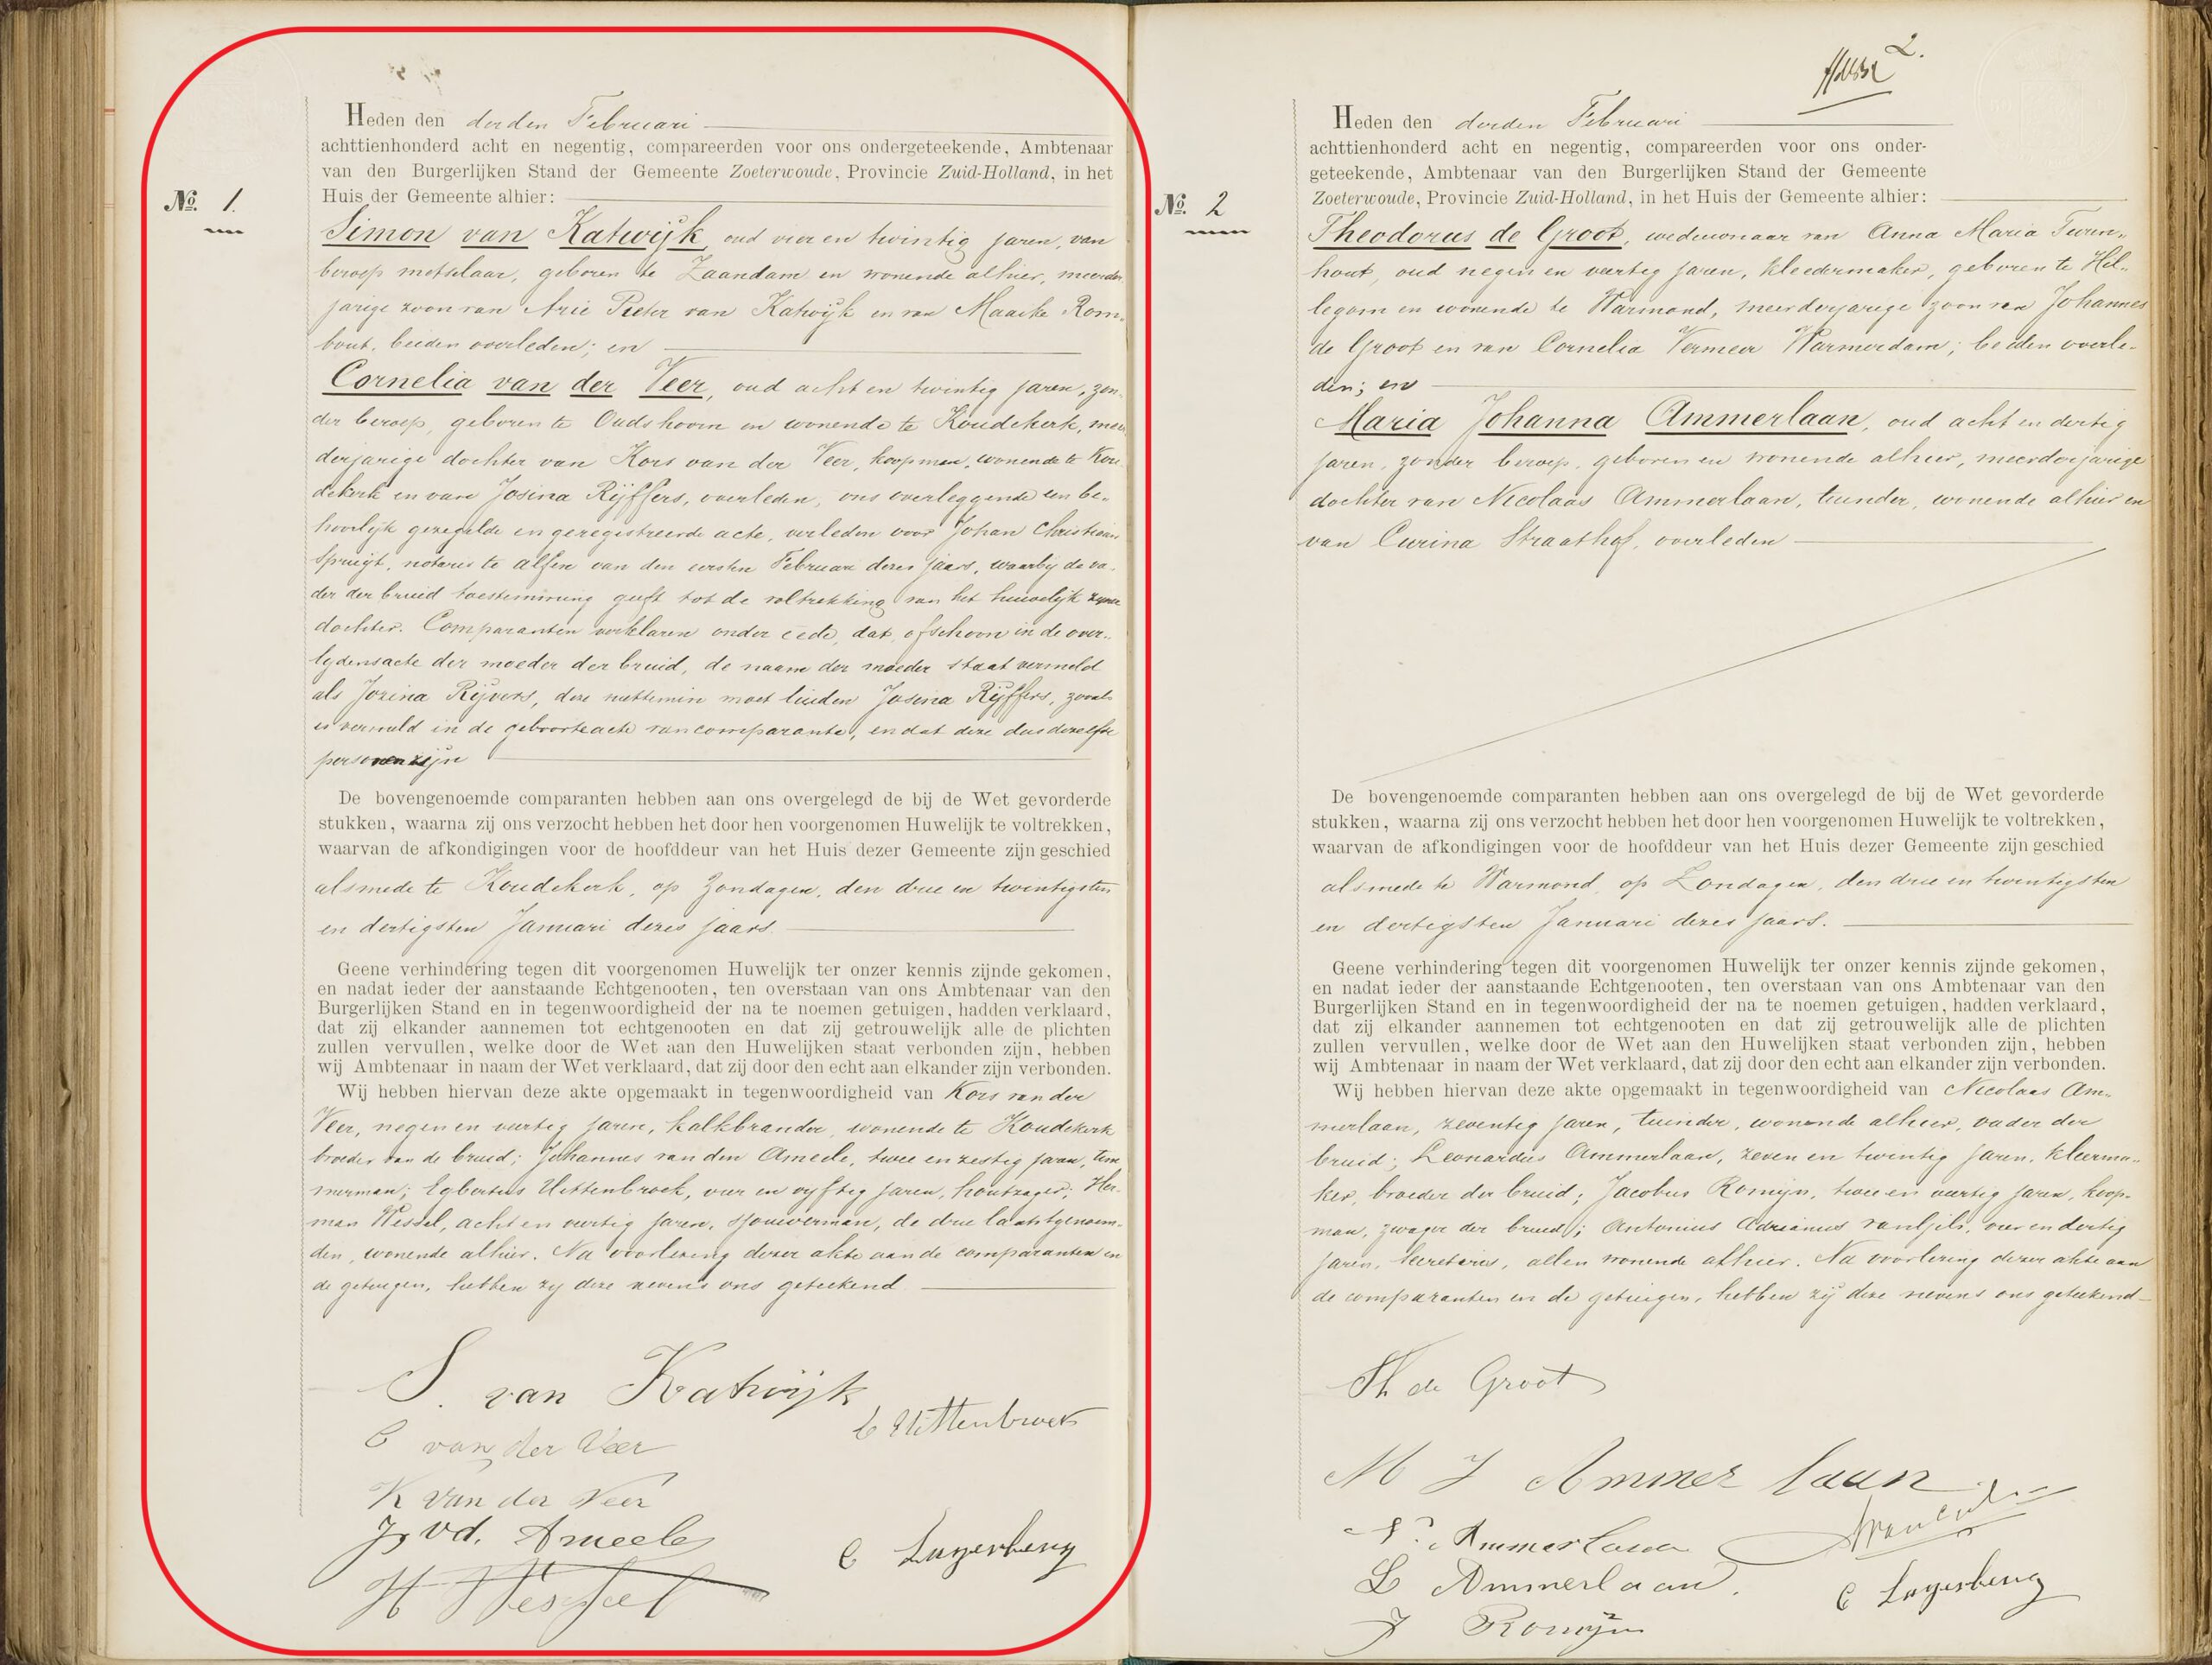 Heden den derden Februari
achttienhonderd acht en negentig, compareerden voor ons ondergeteekende, Ambtenaar
van den Burgerlijken Stand der Gemeente Zoeterwoude, Provincie Zuid-Holland, in het
No. 1.
Huis der Gemeente alhier:
Simon van Katwijk, oud vier en twintig jaren, van
beroep metselaar, geboren te Zaandam en wonende alhier, meerder
jarige zoon van Arie Pieter van Katwijk en van Maaike Rom„
bout, beiden overleden; en
Cornelia van der Veer, oud acht en twintig jaren, zon„
der beroep, geboren te Oudshoorn en wonende te Koudekerk, meer
derjarige dochter van Kors van der Veer, koopman, wonende te Kou
dekerk en van Josina Rijffers, overleden, ons overleggende een be„
hoorlijk gezegelde en geregistreerde acte, verleden voor Johan Christiaan
Spruijt, notaris te Alfen van den eersten Februari dezes jaars, waarbij de va„
der der bruid toestemming geeft tot de voltrekking van het huwelijk zijner
dochter. Comparanten verklaren onder eede, dat, ofschoon in de over„
lijdensacte der moeder der bruid, de naam der moeder staat vermeld
als Jozina Rijvers, deze niettemin moet luiden Josina Rijffers, zooals
is vermeld in de geboorteacte van comparante, en dat deze dus dezelfde
personen zijn
De bovengenoemde comparanten hebben aan ons overgelegd de bij de Wet gevorderde
stukken, waarna zij ons verzocht hebben het door hen voorgenomen Huwelijk te voltrekken,
waarvan de afkondigingen voor de hoofddeur van het Huis dezer Gemeente zijn geschied
alsmede te Koudekerk, op Zondagen, den drie en twintigsten
en dertigsten Januari dezes jaars.
Geene verhindering tegen dit voorgenomen Huwelijk ter onzer kennis zijnde gekomen,
en nadat ieder der aanstaande Echtgenooten, ten overstaan van ons Ambtenaar van den
Burgerlijken Stand en in tegenwoordigheid der na te noemen getuigen, hadden verklaard,
dat zij elkander aannemen tot echtgenooten en dat zij getrouwelijk alle de plichten
zullen vervullen, welke door de Wet aan den Huwelijken staat verbonden zijn, hebben
wij Ambtenaar in naam der Wet verklaard, dat zij door den echt aan elkander zijn verbonden.
Wij hebben hiervan deze akte opgemaakt in tegenwoordigheid van Kors van der
Veer, negen en veertig jaren, kalkbrander, wonende te Koudekerk
broeder van de bruid; Johannes van den Ameele, twee en zestig jaren, tim
merman; Egbertus Uittenbroek, vier en vijftig jaren, houtzager; Her„
man Wessel, acht en veertig jaren, sjouwerman, de drie laatstgenoem„
den, wonende alhier. Na voorlezing dezer akte aan de comparanten en
de getuigen, hebben zij deze nevens ons geteekend
S. van Katwijk
E Uittenbroek
C van der Veer
K van der Veer
J vd. Ameele
C Lagerberg
H Wessel
2.
Heden den derden Februari
achttienhonderd acht en negentig, compareerden voor ons onder-
geteekende, Ambtenaar van den Burgerlijken Stand der Gemeente
No. 2
Zoeterwoude, Provincie Zuid-Holland, in het Huis der Gemeente alhier:
Theodorus de Groot, weduwnaar van Anna Maria Turen„
hout, oud negen en veertig jaren, kleedermaker, geboren te Hil„
legom en wonende te Warmond, meerderjarige zoon van Johannes
de Groot en van Cornelia Vermeer Warmerdam; beiden overle„
den; en
Maria Johanna Ammerlaan, oud acht en dertig
jaren, zonder beroep, geboren en wonende alhier, meerderjarige
dochter van Nicolaas Ammerlaan, tuinder, wonende alhier en
van Curina Straathof, overleden
De bovengenoemde comparanten hebben aan ons overgelegd de bij de Wet gevorderde
stukken, waarna zij ons verzocht hebben het door hen voorgenomen Huwelijk te voltrekken,
waarvan de afkondigingen voor de hoofddeur van het Huis dezer Gemeente zijn geschied
alsmede te Warmond op Zondagen, den drie en twintigsten
en dertigsten Januari dezes jaars.
Geene verhindering tegen dit voorgenomen Huwelijk ter onzer kennis zijnde gekomen,
en nadat ieder der aanstaande Echtgenooten, ten overstaan van ons Ambtenaar van den
Burgerlijken Stand en in tegenwoordigheid der na te noemen getuigen, hadden verklaard,
dat zij elkander aannemen tot echtgenooten en dat zij getrouwelijk alle de plichten
zullen vervullen, welke door de Wet aan den Huwelijken staat verbonden zijn, hebben
wij Ambtenaar in naam der Wet verklaard, dat zij door den echt aan elkander zijn verbonden.
Wij hebben hiervan deze akte opgemaakt in tegenwoordigheid van Nicolaas Am„
merlaan, zeventig jaren, tuinder, wonende alhier, vader der
bruid; Leonardus Ammerlaan, zeven en twintig jaren, kleerma„
ker, broeder der bruid; Jacobus Romijn, twee en veertig jaren, koop„
man, zwager der bruid; Antonius Adrianus van Gils, vier en dertig
jaren, secretaris, allen wonende alhier. Na voorlezing dezer akte aan
de comparanten en de getuigen, hebben zij deze nevens ons geteekend
Th de Groot
M J Ammerlaan
N. Ammerlaan
L Ammerlaan.
C Lagerberg
J Romijn